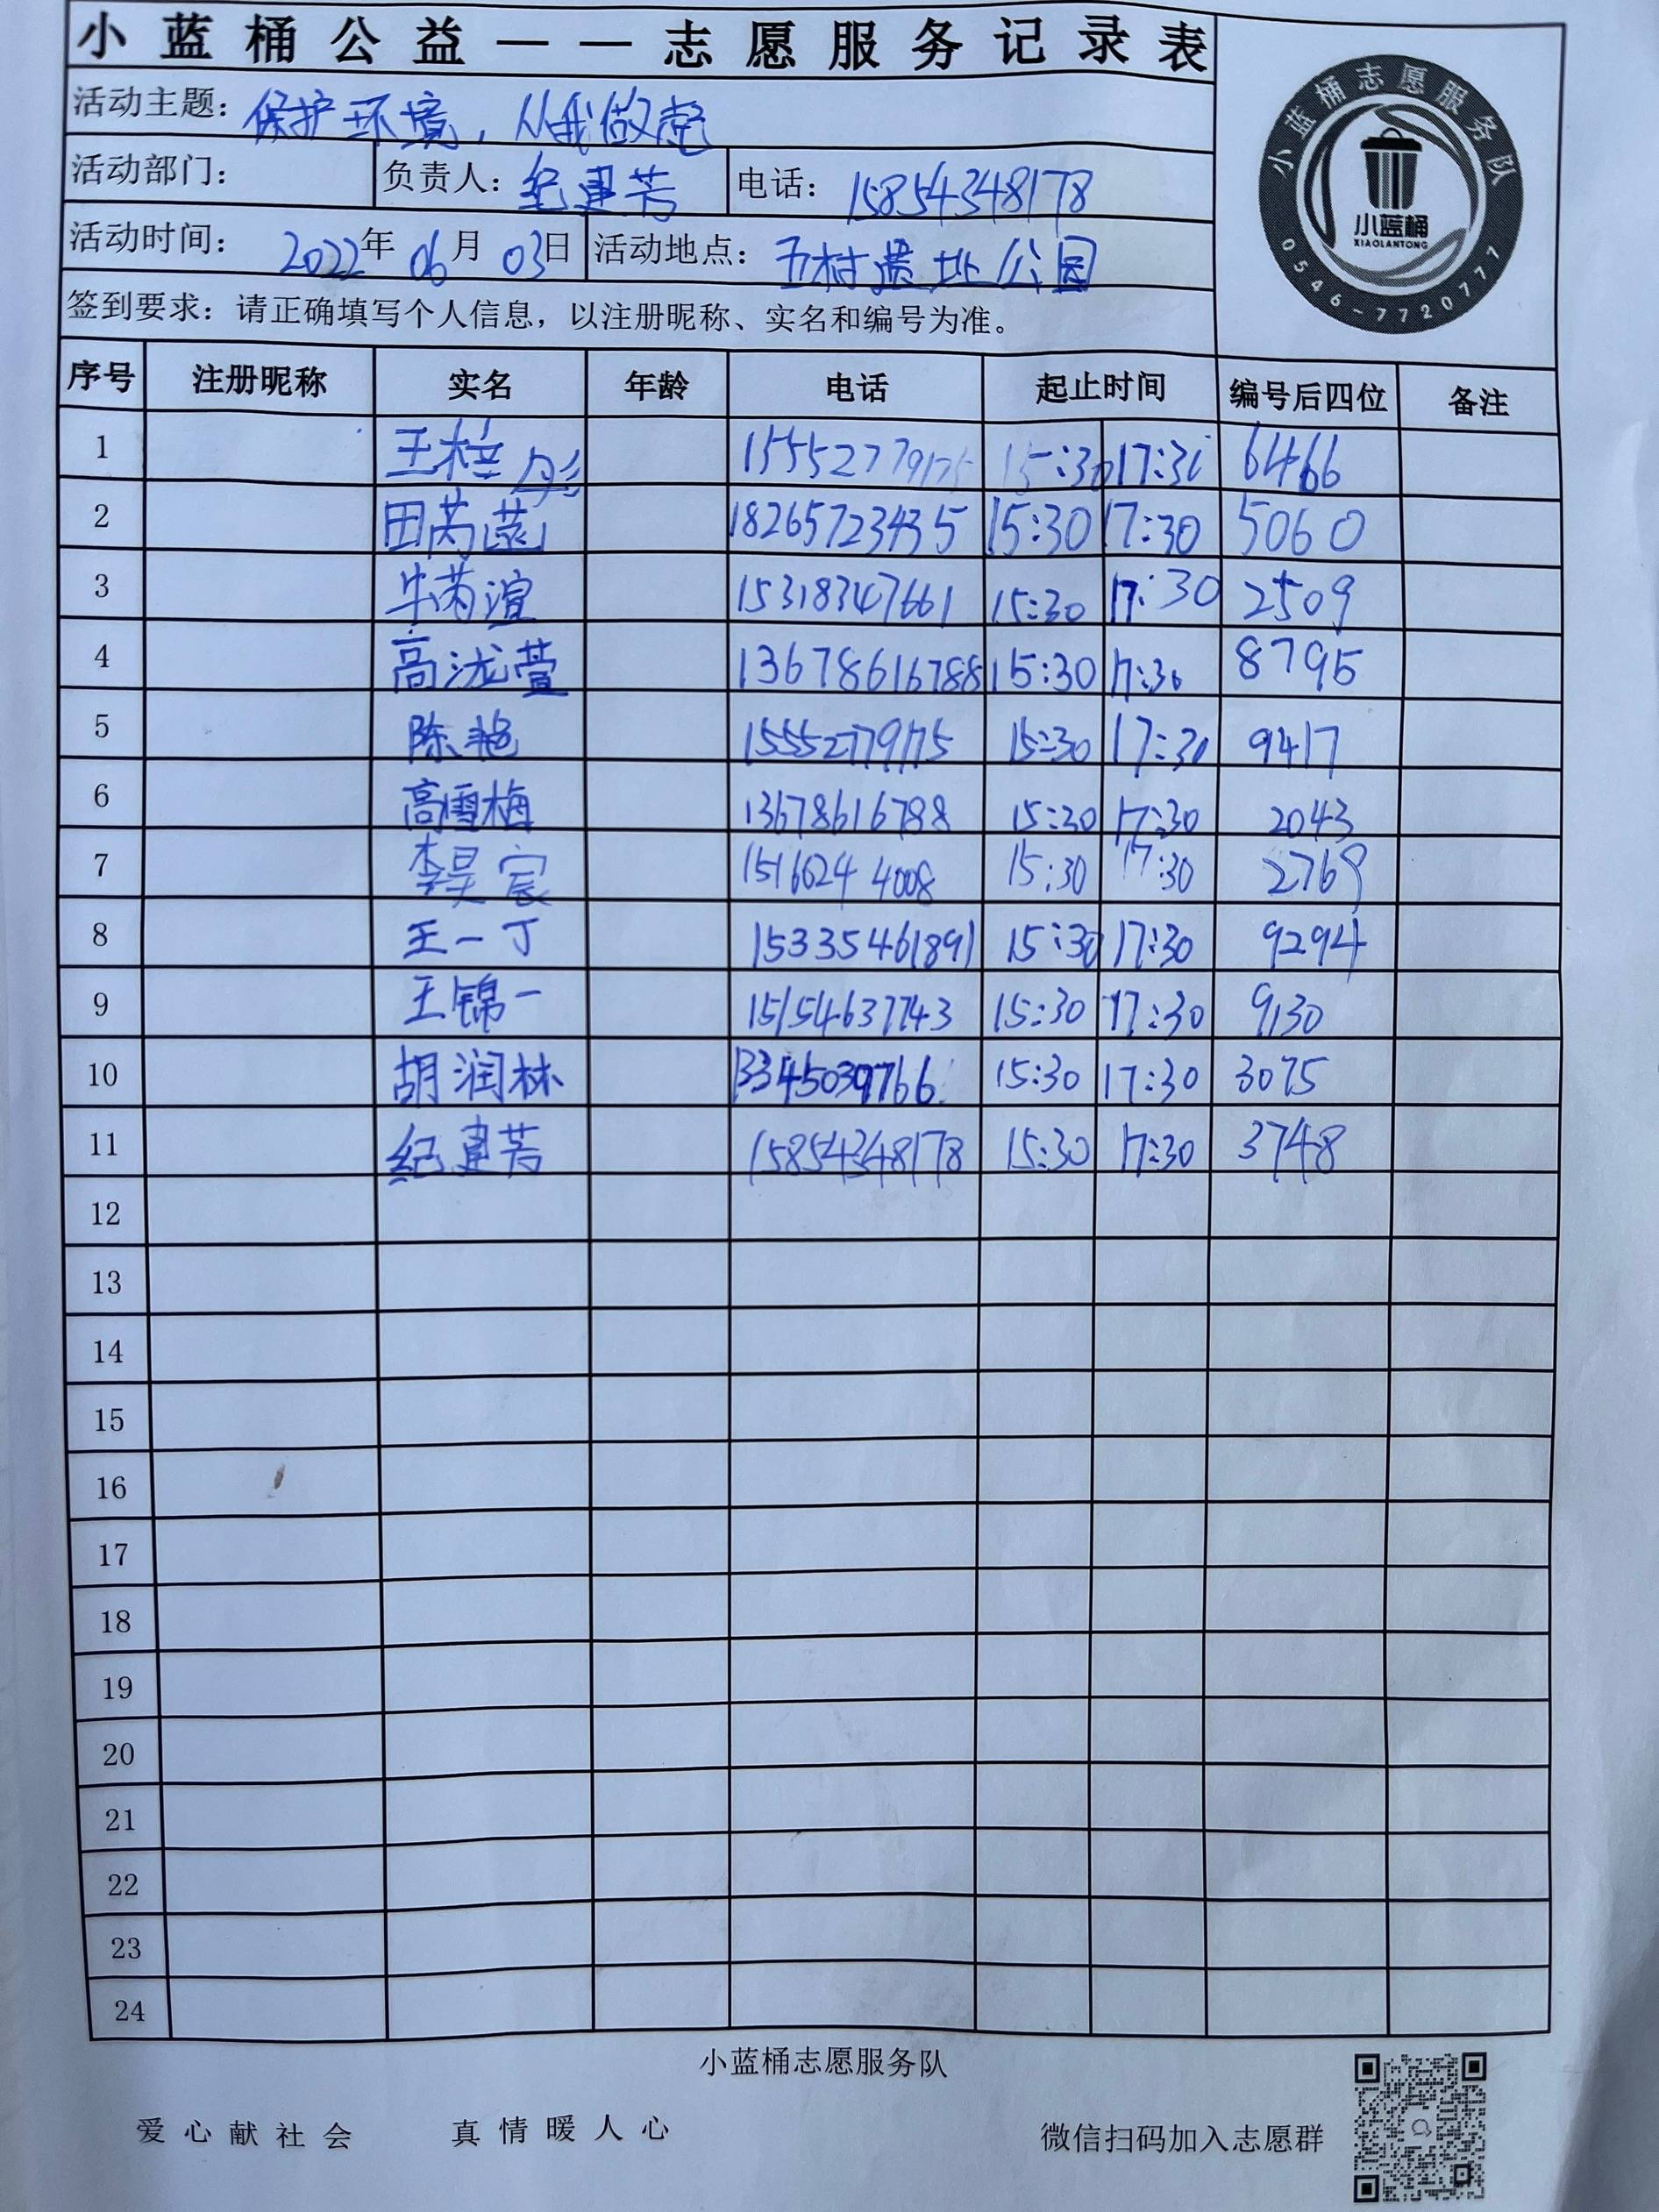 小蓝桶公益——志愿服务记录表
小蓝桶志愿服务队
小蓝桶
XIAOLANTONG
0546-7720777
活动主题：保护环境，从我做起
活动部门： 负责人：纪建芳 电话：15854348178
活动时间：2022年06月03日 活动地点：五村遗址公园
签到要求：请正确填写个人信息，以注册昵称、实名和编号为准。
序号 注册昵称 实名 年龄 电话 起止时间 编号后四位 备注
1 王梓彤 15552779175 15:30 17:30 6466
2 田芮菡 18265723435 15:30 17:30 5060
3 牛芮渲 15318347661 15:30 17:30 2509
4 高泷萱 13678616788 15:30 17:30 8795
5 陈艳 15552779175 15:30 17:30 9417
6 高雪梅 13678616788 15:30 17:30 2043
7 李昊宸 15166244008 15:30 17:30 2769
8 王一丁 15335461891 15:30 17:30 9294
9 王锦一 15154637743 15:30 17:30 9130
10 胡润林 15:30 17:30 3075
11 纪建芳 15854348178 15:30 17:30 3748
12
13
14
15
16
17
18
19
20
21
22
23
24
小蓝桶志愿服务队
爱心献社会 真情暖人心 微信扫码加入志愿群